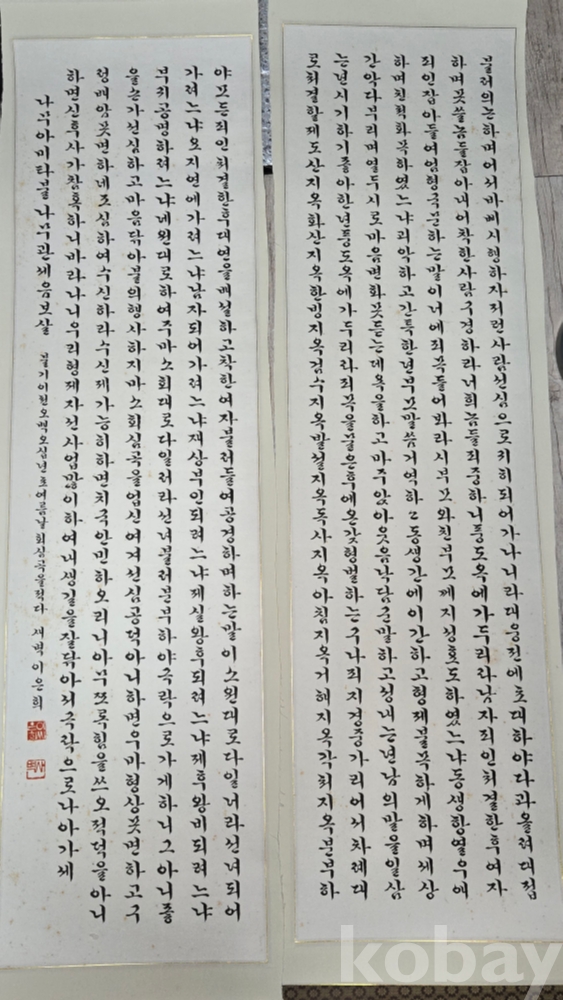 불러의논하며어서바삐시행하자저런사람선심으로귀히되어가나니라대웅전에초대하야다과올려대접
하며못쓸놈들잡아내어착한사람구경하라너희놈들죄중하니풍도옥에가두리라남자죄인처결한후여자
죄인잡아들여엄형국문하는말이너에죄목들어봐라시부모와친부모께지성효도하였느냐동생항렬우애
하며친척화목하였느냐괴악하고간특한년부모말씀거역하고동생간에이간하고형제불목하게하며세상
간악다부리며열두시로마음변화못듣는데욕을하고마주앉아웃음낙담군말하고성내는년남의말을일삼
는년시기하기좋아한년풍도옥에가두리라죄목을물은후에온갖형벌하는구나죄지경중가리어서차례대
로처결할제도산지옥화산지옥한빙지옥검수지옥발설지옥독사지옥아침지옥거해지옥각처지옥분부하
야모든죄인처결한후대연을배설하고착한여자불러들여공경하며하는말이소원대로다일너라선녀되어
가려느냐요지연에가려느냐남자되어가려느냐재상부인되려느냐제실왕후되려느냐제후왕비되려느냐
부귀공명하려느냐네원대로하여주마소회대로다일러라선녀불러분부하야극락으로가게하니그아니좋
을손가선심하고마음닦아불의행사하지마소회심곡을업신여겨선심공덕아니하면우마형상못면하고구
렁배암못면하네조심하여수신하라수신제가능히하면치국안민하오리니아무쪼록힘을쓰오적덕을아니
하면신후사가참혹하니바라나니우리형제자선사업많이하여내생길을잘닦아서극락으로나아가세
나무아미타불나무관세음보살
불기이천오백오십년초여름날회심곡을적다 새벽이은희
kobay